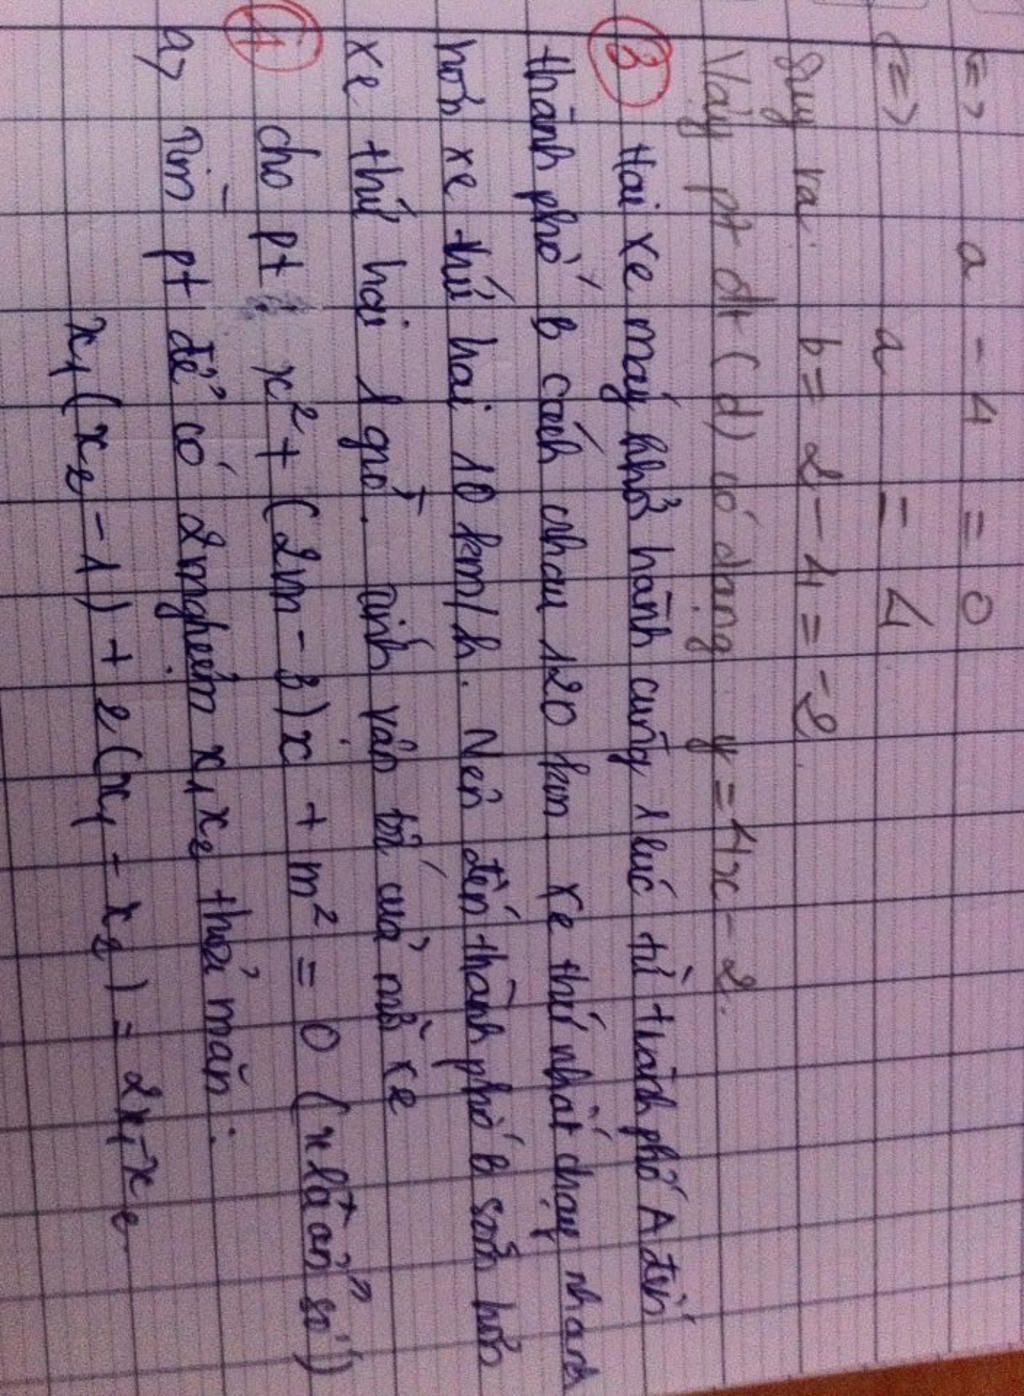 <=> a - 4 = 0
<=> a = 4
Suy ra: b = 2 - 4 = -2
Vậy pt đt (d) có dạng y = 4x - 2.
③ Hai xe máy khởi hành cùng 1 lúc từ thành phố A đến
thành phố B cách nhau 120 km xe thứ nhất chạy nhanh
hơn xe thứ hai 10 km/h. Nên đến thành phố B sớm hơn
xe thứ hai 1 giờ. Tính vận tốc của mỗi xe
④ cho pt: x² + (2m - 3)x + m² = 0 (x là ẩn số)
a> Tìm pt để có 2 nghiệm x₁ x₂ thỏa mãn:
x₁(x₂ - 1) + 2(x₁ - x₂) = 2x₁ - x₂